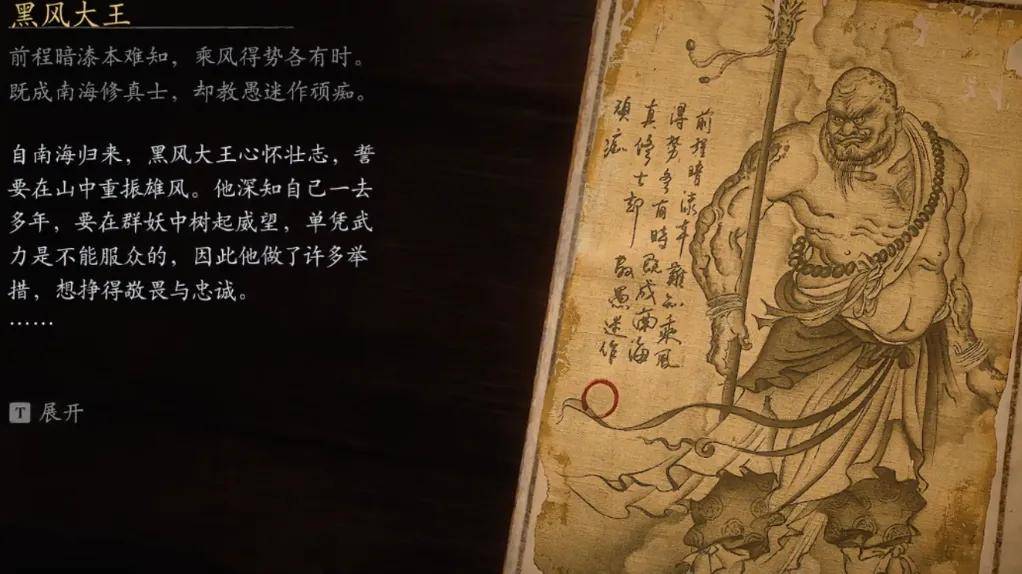 黑风大王
前程暗漆本难知，乘风得势各有时。
既成南海修真士，却教愚迷作顽痴。
自南海归来，黑风大王心怀壮志，誓
要在山中重振雄风。他深知自己一去
多年，要在群妖中树起威望，单凭武
力是不能服众的，因此他做了许多举
措，想挣得敬畏与忠诚。
……
T 展开
前程暗漆本難知乘風
得势各有時既成南海
真修士却教愚迷作
頑痴